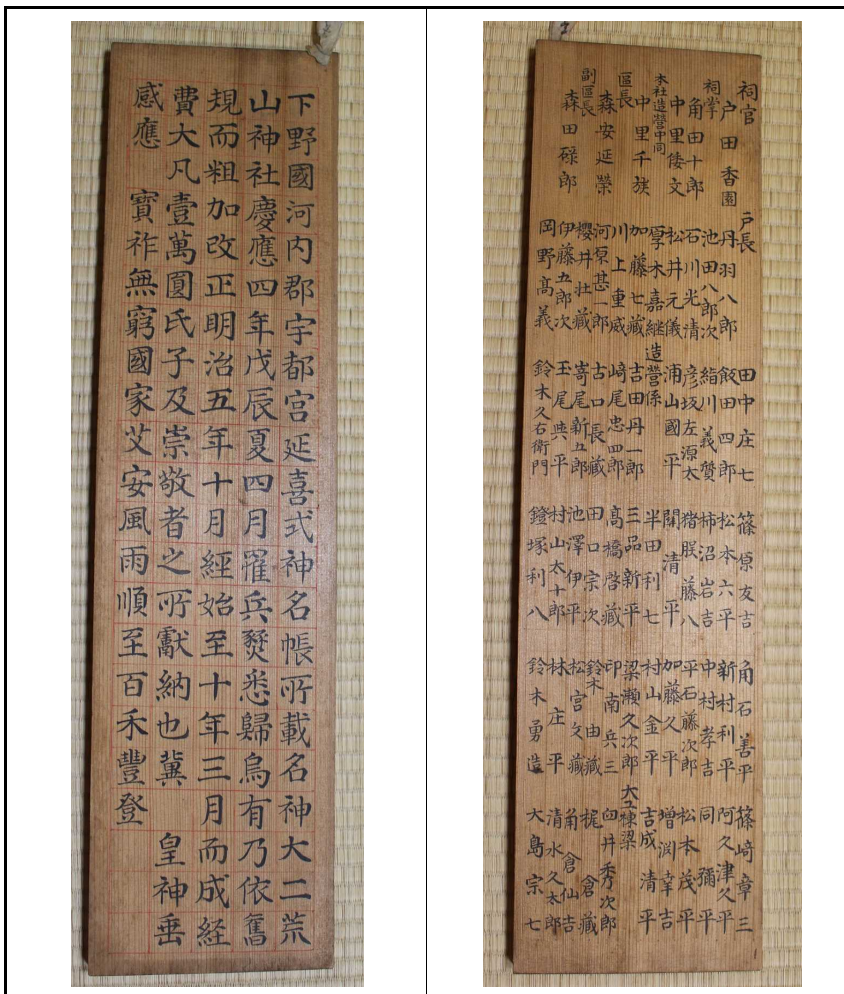 下野國河内郡宇都宮延喜式神名帳所載名神大二荒
山神社慶應四年戊辰夏四月罹兵燹悉歸烏有乃依舊
規而粗加改正明治五年十月經始至十年三月而成経
費大凡壹萬圓氏子及崇敬者之所獻納也冀　皇神垂
感應　寳祚無窮國家艾安風雨順至百禾豐登
祠官
戸田香園
祠掌
角田十郎
中里倭文
本社造營中同
中里千族
區長
森安延榮
副區長
森田碌郎
戸長
丹羽八郎
池田八郎次
石川光清
松井元儀
厚木嘉継
加藤七藏
川上重威
河原甚一郎
櫻井壮藏
伊藤五郎次
岡野髙義
田中庄七
飯田四郎
絹川義質
彦坂左源太
浦山國平
造營係
吉田丹一郎
﨑尾忠四郎
古口長藏
嵜尾新五郎
玉尾典平
鈴木久右衛門
篠原友吉
松本六平
柿沼岩吉
猪股藤八
關清平
半田利七
三品新平
髙橋啓藏
田口宗次
池澤伊平
村山太十郎
鐙塚利八
角石善平
新村利平
中村孝吉
平石藤次郎
加藤久平
村山金平
梁瀬久次郎
印南兵三
鈴木由藏
松宮文藏
林庄平
鈴木勇造
篠﨑章三
阿久津久平
同彌平
松本茂平
増渕幸吉
吉成清平
大工棟梁
臼井秀次郎
梶倉藏
角倉仙吉
清水久太郎
大島宗七